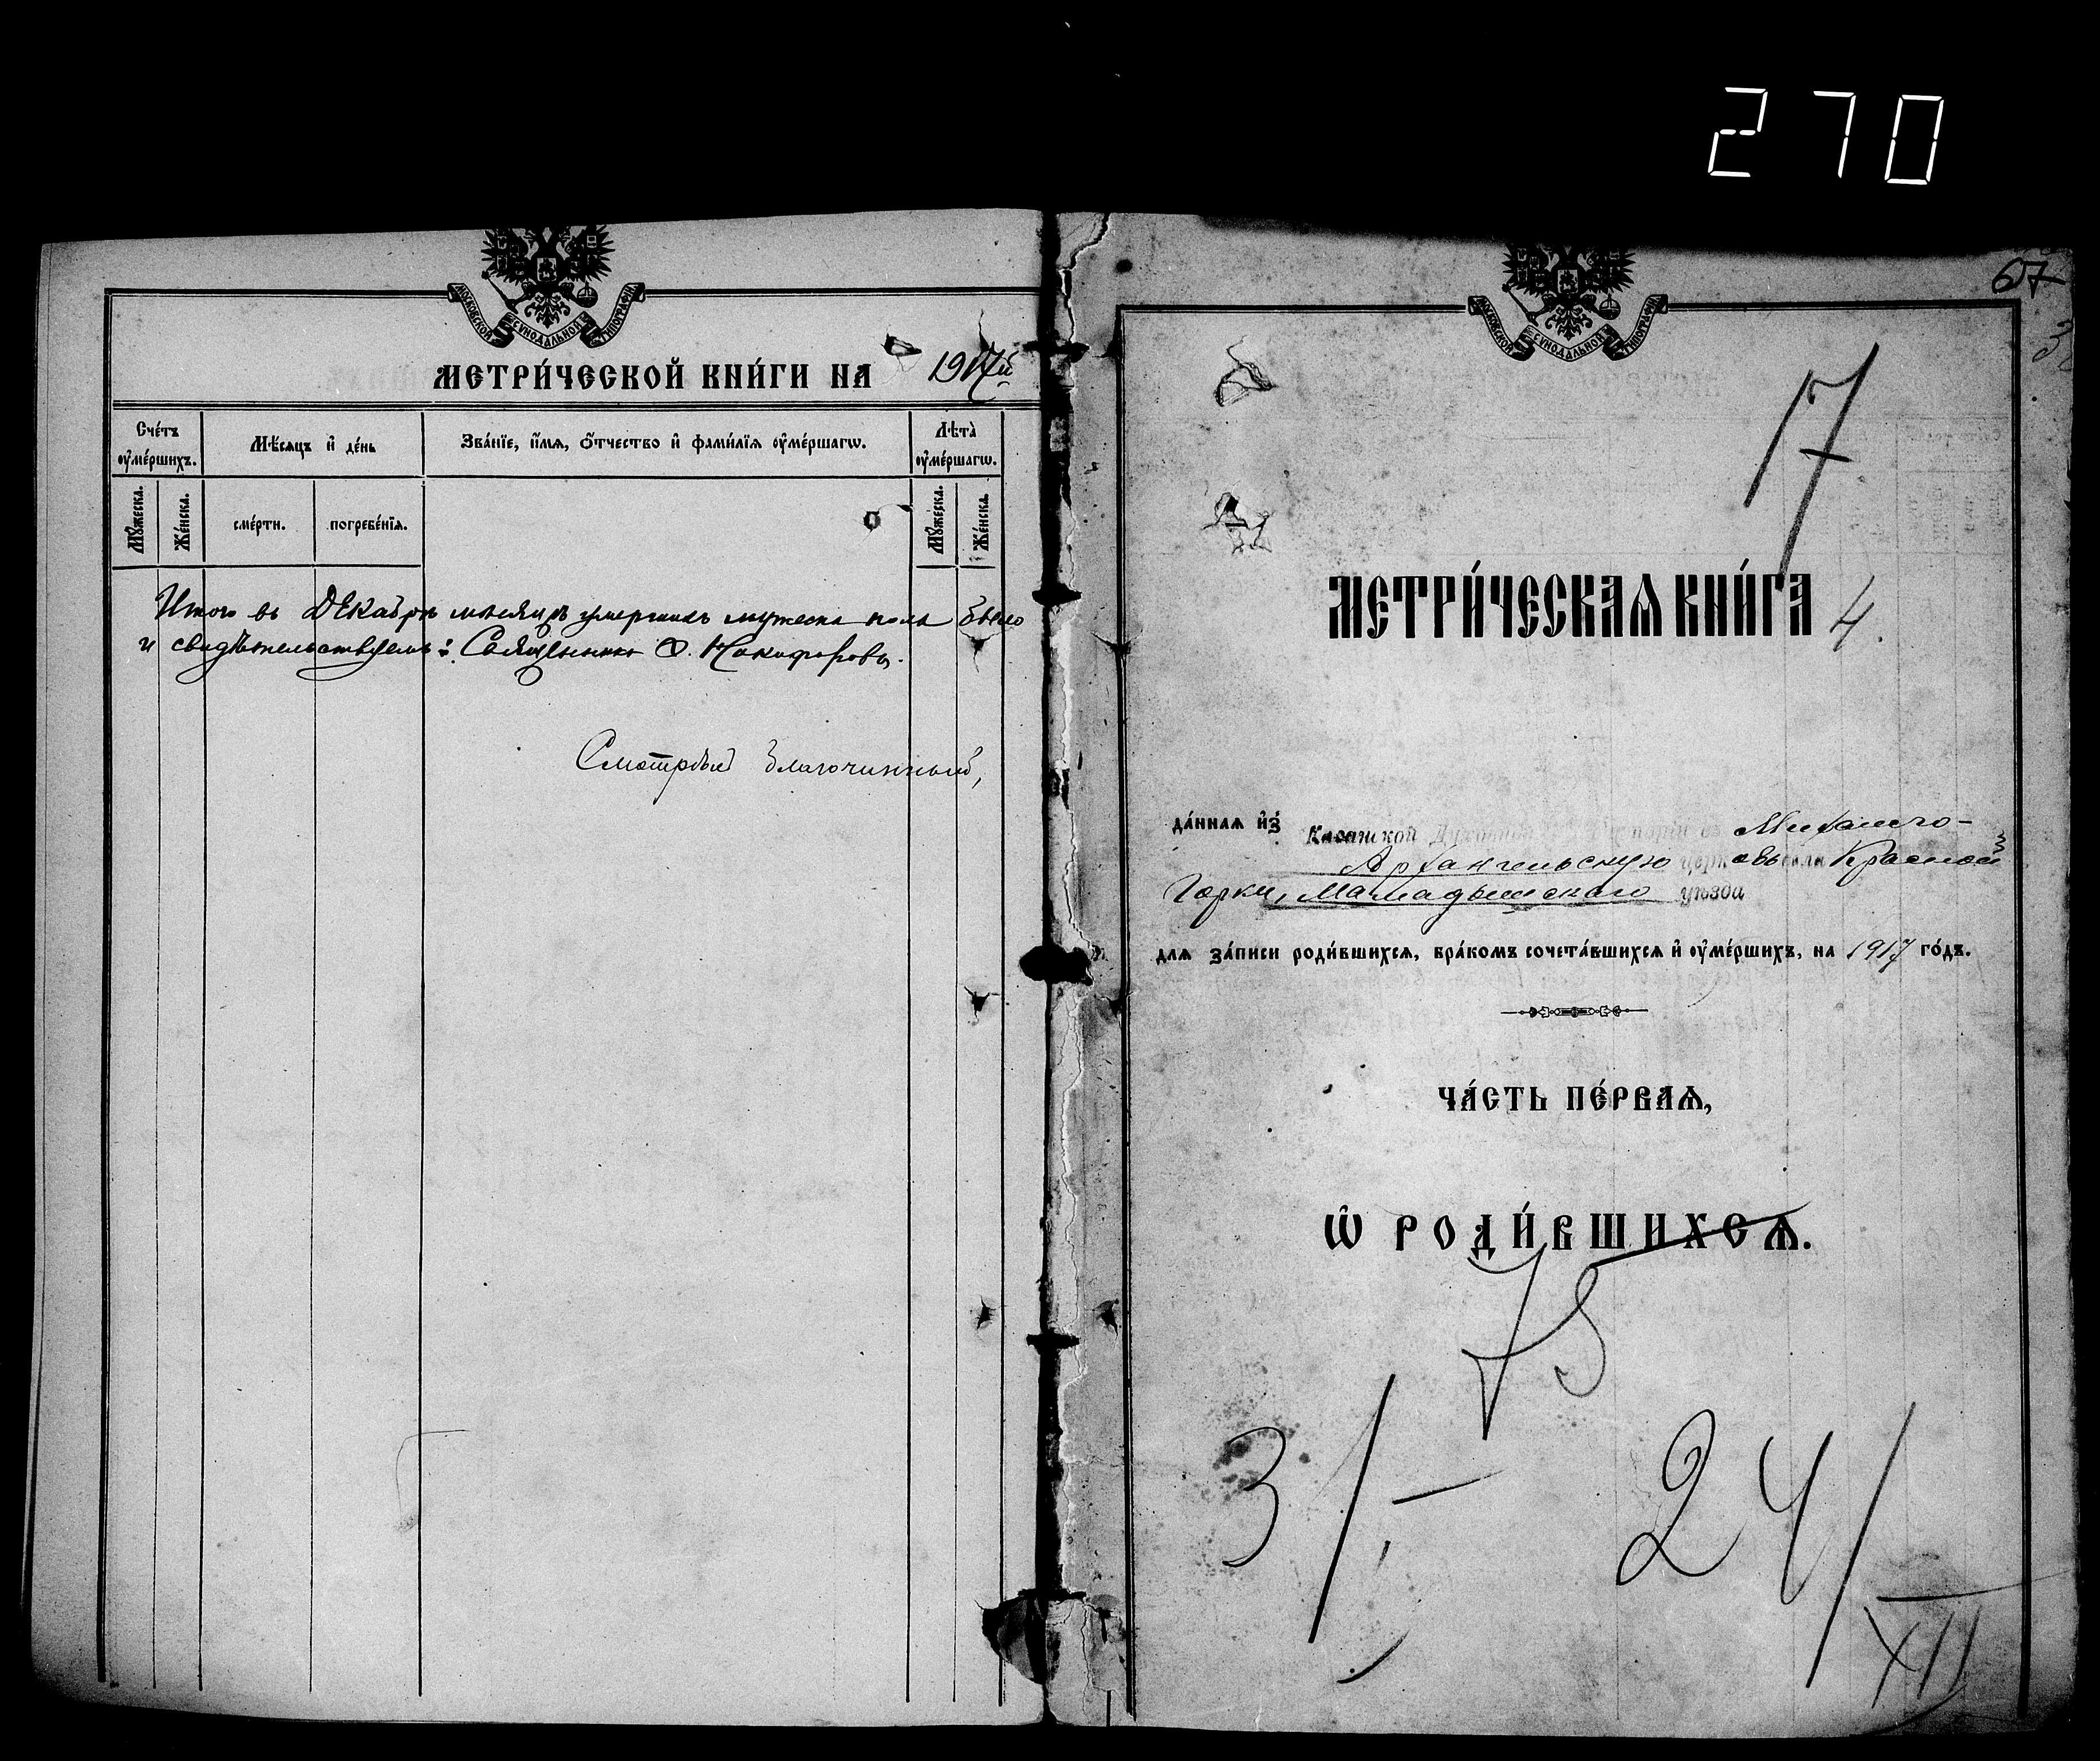 270
МОСКОВСКОЙ СѴНОДАЛЬНОЙ ТИПОГРАФІИ
МЕТРИ́ЧЕСКОЙ КНИ́ГИ НА 1917й
Сче́тъ оу҆ме́ршихъ.
Мѣ́сяцъ и҆ де́нь
Зва́нїе, и҆́мѧ, ѻ҆́тчество и҆ фами́лїѧ оу҆ме́ршагѡ.
Лѣ́та оу҆ме́ршагѡ.
Мꙋ́жеска.
Же́нска.
сме́рти.
погребе́нїѧ.
Мꙋ́жеска.
Же́нска.
Итого въ Декабрѣ мѣсяцѣ умершихъ мужеска пола было
и свидѣтельствуемъ: Священникъ Ѳ. Никифоровъ.
Смотрѣлъ Благочинный,
67
МОСКОВСКОЙ СѴНОДАЛЬНОЙ ТИПОГРАФІИ
17
МЕТРИ́ЧЕСКАѦ КНИ́ГА 4.
да́ннаѧ и҆з̾ Казанской Духовной Консисторіи въ Михаило-
Архангельскую церковь села Красной
Горки, Мамадышскаго уѣзда
длѧ за́писи роди́вшихсѧ, бра́комъ сочета́вшихсѧ и҆ оу҆ме́ршихъ, на 1917 го́дъ.
ЧА́СТЬ ПЕ́РВАѦ,
Ѡ҆ РОДИ́ВШИХСѦ.
75
31/-
24/XII